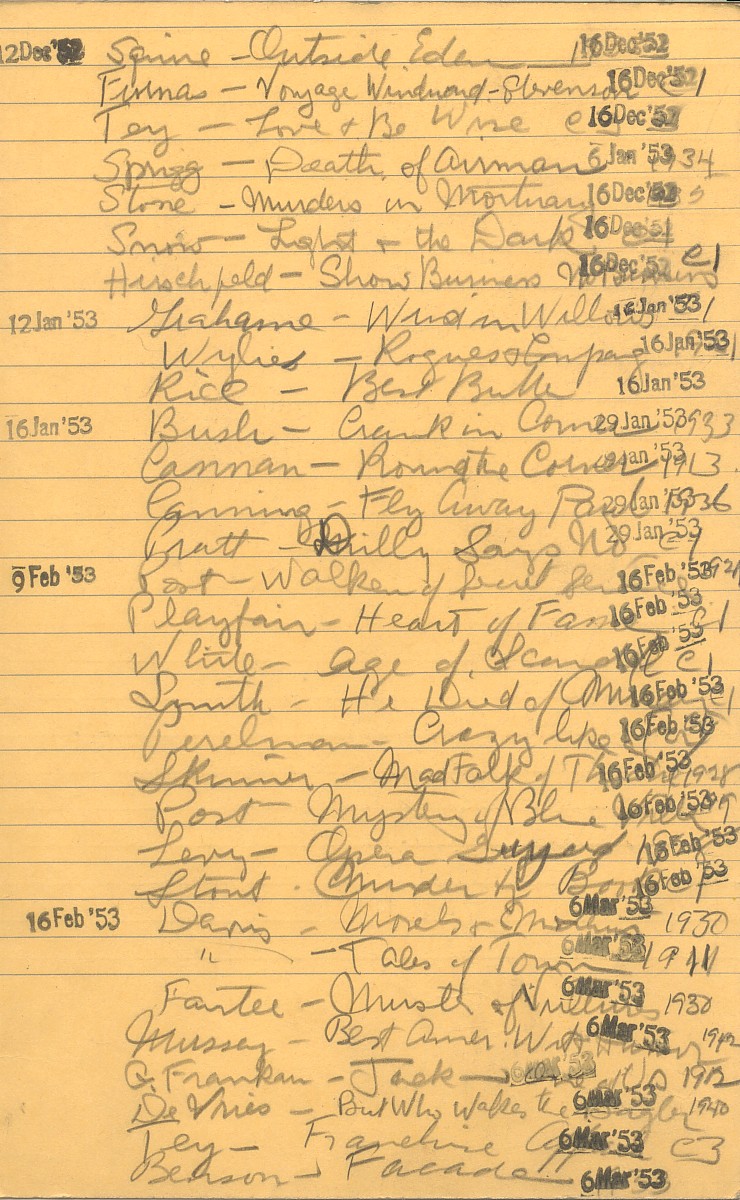 12 Dec '52 Squire - Outside Eden 16 Dec '52
Firmas - Voyage Windward - Stevenson 16 Dec '52 c1
Tey - Love & Be Wise 16 Dec '52
Sprigg - Death of Airman 6 Jan '53 1934
Stone - Murders in Mortuary 16 Dec '52
Snow - Light & the Dark 16 Dec '52 c1
Hirschfeld - Show Business 16 Dec '52 c1
12 Jan '53 Grahame - Wind in Willows 16 Jan '53 c1
Wylie - Rogues & Company 16 Jan '53
Rice - Best Butler 16 Jan '53
16 Jan '53 Bush - Crank in Corner 29 Jan '53 1933
Cannan - Round the Corner 29 Jan '53 1913
Canning - Fly Away Paul 29 Jan '53 1936
Pratt - Dilly Says No 29 Jan '53 c1
9 Feb '53 Post - Walker of Secret Service 16 Feb '53
Playfair - Heart of Fame 16 Feb '53 c1
White - Age of Scandal 16 Feb '53 c1
Smith - He Died of Murder 16 Feb '53
Perelman - Crazy like 16 Feb '53
Skinner - Mad Folk of 16 Feb '53 1928
Post - Mystery of Blue 16 Feb '53
Levy - Opera 16 Feb '53
Stout - Murder by Book 16 Feb '53
16 Feb '53 Davis - Morals & 6 Mar '53 1930
" - Tales of Town 6 Mar '53
- Muster of 6 Mar '53 1930
Mussey - Best Amer. Wit & Humor 6 Mar '53 1942
G. Frankau - Jack - 6 Mar '53 1912
De Vries - But Who Wakes the Bugler 6 Mar '53 1940
Tey - Franchise Affair 6 Mar '53 c3
Benson - Facade 6 Mar '53